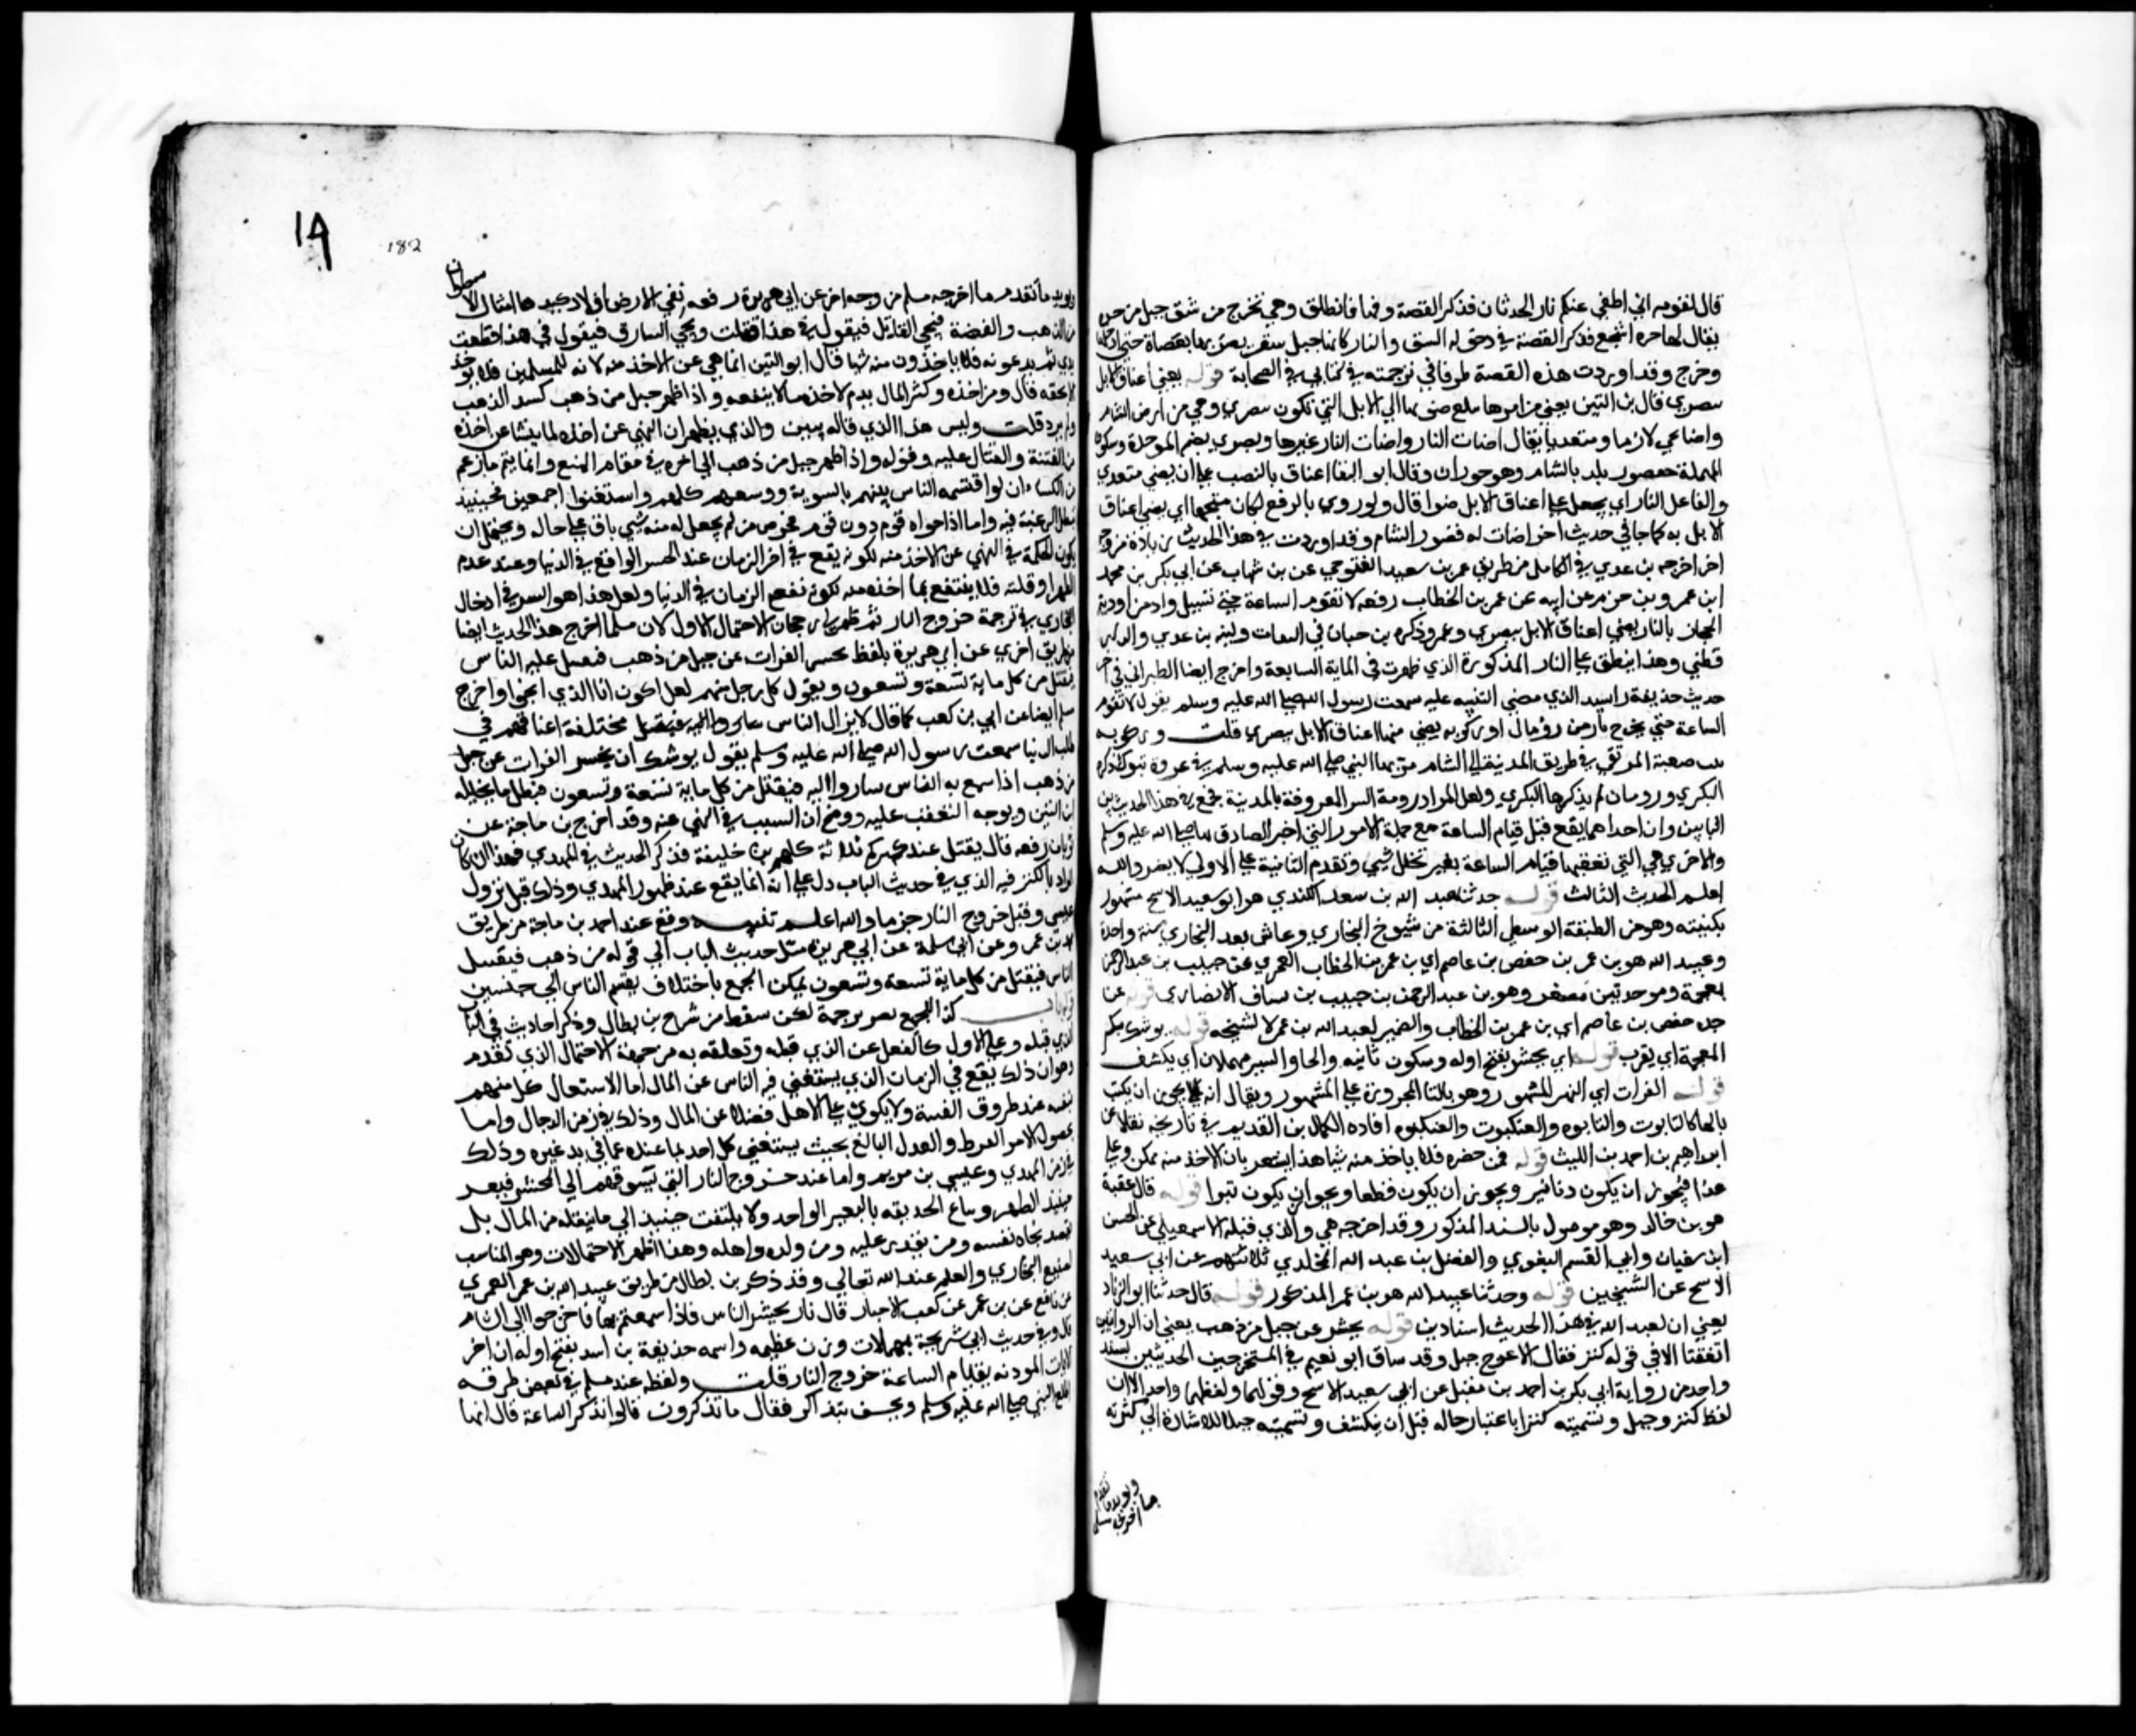 قال لقومه اني اطفي عنكم نار الحدثان فذكر القصة وفيها فانطلق وهي تخرج من شق جبل من حرة
يقال لها حرة اشجع فذكر القصة في دخوله الشق والنار كانها جبل سقر يضربها بعصاه حتى ادخلها
وخرج وقد اوردت هذه القصة طرفا في ترجمته في كتابي في الصحابة قوله يضي اعناق الابل
ببصري قال بن التين يعني من اخرها يبلغ ضوءها الي الابل التي تكون ببصري وهي من ارض الشام
واضا يجي لازما ومتعديا يقال اضات النار واضات النار غيرها وبصري بضم الموحدة وسكون
المهملة مقصور بلد بالشام وهو حوران وقال ابو البقا اعناق بالنصب علي ان يضي متعدي
والفاعل النار اي يجعل علي اعناق الابل ضوا قال ولو روي بالرفع لكان متجها اي يضي اعناق
الابل به كما جا في حديث اخر اضات له قصور الشام وقد اوردت في هذا الحديث زيادة من وجه
اخر اخرجه بن عدي في الكامل من طريق عمر بن سعيد التنوخي عن بن شهاب عن ابي بكر بن محمد
ابن عمرو بن حزم عن ابيه عن عمر بن الخطاب رفعه لا تقوم الساعة حتي يسيل واد من اودية
الحجاز بالنار يضي اعناق الابل ببصري وعمر ذكره بن حبان في الثقات ولينه بن عدي والدار
قطني وهذا ينطبق علي النار المذكورة التي ظهرت في الماية السابعة واخرج ايضا الطبراني في اخر
حديث حذيفة بن اسيد الذي مضي التنبيه عليه سمعت رسول الله صلي الله عليه وسلم يقول لا تقوم
الساعة حتي يخرج نار من رومان او ركوبه يضي منها اعناق الابل ببصري قلت وركوبه
صعبة المرتقي في طريق المدينة الي الشام مر بها النبي صلي الله عليه وسلم في غزوة تبوك ذكره
البكري ورومان لم يذكرها البكري ولعل المراد رومة البير المعروفة بالمدينة فجمع في هذا الحديث بين
النارين وان احداهما يقع قبل قيام الساعة مع جملة الامور التي اخبر الصادق بها صلي الله عليه وسلم
والاخري هي التي تعقبها قيام الساعة بغير تخلل شي وتقدم الثانية علي الاولي لا يضر والله
اعلم الحديث الثالث قوله حدثنا عبد الله بن سعيد الكندي هو ابو سعيد الاشج مشهور
بكنيته وهو من الطبقة الوسطي الثالثة من شيوخ البخاري وعاش بعد البخاري سنة واحدة
وعبيد الله هو بن عمر بن حفص بن عاصم اي بن عمر بن الخطاب العمري عن خبيب بن عبد الرحمن
بمعجمة وموحدتين مصغر وهو بن عبد الرحمن بن خبيب بن يساف الانصاري قوله عن
جده حفص بن عاصم اي بن عمر بن الخطاب والضمير لعبيد الله بن عمر لا لشيخه قوله يوشك بكسر
المعجمة اي يقرب قوله اي يحسر بفتح اوله وسكون ثانيه والحا والسين مهملان اي يكشف
قوله الفرات اي النهر المشهور وهو بالتا المجرورة علي المشهور ويقال انه يجوز ان يكتب
بالها كالتابوت والتابوه والعنكبوت والعنكبوه افاده الكمال بن القديم في تاريخه نقلا عن
ابراهيم بن احمد بن الليث قوله فمن حضره فلا ياخذ منه شيا هذا يشعر بان الاخذ منه ممكن وعلي
هذا فيجوز ان يكون دنانير ويجوز ان يكون قطعا ويجوز ان يكون تبرا قوله قال عقبة
هو بن خالد وهو موصول بالسند المذكور وقد اخرجه هي والذي قبله الاسمعيلي عن الحسن
ابن سفيان وابي القسم البغوي والفضل بن عبد الله المخلدي ثلاثتهم عن ابي سعيد
الاشج عن الشيخين قوله وحدثنا عبيد الله هو بن عمر المذكور قوله قال حدثنا ابو الزناد
يعني ان لعبيد الله في هذا الحديث اسنادين قوله يحسر عن جبل من ذهب يعني ان الروايتين
اتفقتا الا في قوله كنز فقال الاعرج جبل وقد ساق ابو نعيم في المستخرجين الحديثين بسند
واحد من رواية ابي بكر بن احمد بن مقبل عن ابي سعيد الاشج وفرقهما ولفظهما واحد الا ان
لفظ كنز وجبل وتسميته كنزا باعتبار حاله قبل ان ينكشف وتسميته جبلا للاشارة الي كثرته
ويويد ما تقدم
ما اخرجه مسلم
19
182
ويويده ما تقدم ما اخرجه مسلم من وجه اخر عن ابي هريرة رفعه تقي الارض افلاذ كبدها امثال الاسطوان
من الذهب والفضة فيجي القاتل فيقول في هذا قتلت ويجي السارق فيقول في هذا قطعت
يدي ثم يدعونه فلا ياخذون منه شيا قال ابن التين انما نهي عن الاخذ منه لانه للمسلمين فلا يوخذ
الا بحقه قال ومن اخذه وكثر المال يندم لاخذه ما لا ينفعه واذا ظهر جبل من ذهب كسد الذهب
ولم يرد قلت وليس هذا الذي قاله ببين والذي يظهر ان النهي عن اخذه لما ينشا عن اخذه
من الفتنة والقتال عليه وقوله واذا ظهر جبل من ذهب الي اخره في مقام المنع وانما يتم ما زعم
من الكساد ان لو اقتسمه الناس بينهم بالسوية ووسعهم كلهم واستغنوا اجمعين فحينيذ
تبطل الرغبة فيه واما اذا حواه قوم دون قوم فحرص من لم يحصل له منه شي باق علي حاله ويحتمل ان
يكون الحكمة في النهي عن الاخذ منه لكونه يقع في اخر الزمان عند الحشر الواقع في الدنيا وعند عدم
الظهر او قلته فلا ينتفع بما اخذ منه لكونه نفعه الزمان في الدنيا ولعل هذا هو السر في ادخال
البخاري في ترجمة خروج النار ثم ظهر لي رجحان الاحتمال الاول لان مسلما اخرج هذا الحديث ايضا
من طريق اخري عن ابي هريرة بلفظ يحسر الفرات عن جبل من ذهب فيقتتل عليه الناس
فيقتل من كل ماية تسعة وتسعون ويقول كل رجل منهم لعلي اكون انا الذي انجو واخرج
مسلم ايضا عن ابي بن كعب كما قال لا يزال الناس مختلفة اعناقهم في
طلب الدنيا سمعت رسول الله صلي الله عليه وسلم يقول يوشك ان يحسر الفرات عن جبل
من ذهب اذا سمع به الناس ساروا اليه فيقتل من كل ماية تسعة وتسعون فبطل ما تخيله
ابن التين وتوجه التعقب عليه ووضح ان السبب في النهي عنه وقد اخرج بن ماجة عن
ثوبان رفعه قال يقتل عند كنزكم ثلاثة كلهم بن خليفة فذكر الحديث في المهدي فهذا ان كان
المراد بالكنز فيه الذي في حديث الباب دل علي انه انما يقع عند ظهور المهدي وذلك قبل نزول
عيسي وقبل خروج النار جزما والله اعلم تنبيه وقع عند احمد بن ماجة من طريق
محمد بن عمر وعن ابي سلمة عن ابي هريرة مثل حديث الباب الي قوله من ذهب فيقتتل
الناس فيقتل من كل ماية تسعة وتسعون يمكن الجمع باختلاف تقسيم الناس الي جنسين
قوله باب كذا للجميع بغير ترجمة لكن سقط من شرح بن بطال وذكر احاديث في الباب
الذي قبله وعلي الاول كالفصل عن الذي قبله وتعلقه به من جهة الاحتمال الذي تقدم
وهو ان ذلك يقع في الزمان الذي يستغني فيه الناس عن المال اما لاشتغال كل منهم
بنفسه عند طروق الفتنة ولا يلوي علي الاهل فضلا عن المال وذلك في زمن الدجال واما
بحصول الامن المفرط والعدل البالغ بحيث يستغني كل احد بما عنده عما في يد غيره وذلك
في زمن المهدي وعيسي بن مريم واما عند خروج النار التي تسوقهم الي المحشر فيعز
حينيذ الظهر وتباع الحديقة بالبعير الواحد ولا يلتفت حينيذ الي ما يثقله من المال بل
يقصد نجاة نفسه ومن يقدر عليه من ولده واهله وهذا اظهر الاحتمالات وهو المناسب
لصنيع البخاري والعلم عند الله تعالي وقد ذكر بن بطال من طريق عبيد الله بن عمر العمري
عن نافع عن بن عمر عن كعب الاحبار قال نار تحشر الناس فاذا سمعتم بها فاخرجوا الي الشام
قال وفي حديث ابي سريحة بمهملات وزن عظيمة واسمه حذيفة بن اسد بفتح اوله ان اخر
الايات الموذنة بقيام الساعة خروج النار قلت ولفظه عند مسلم في بعض طرقه
اطلع النبي صلي الله عليه وسلم ونحن نتذاكر فقال ما تذكرون قالوا نذكر الساعة قال انها